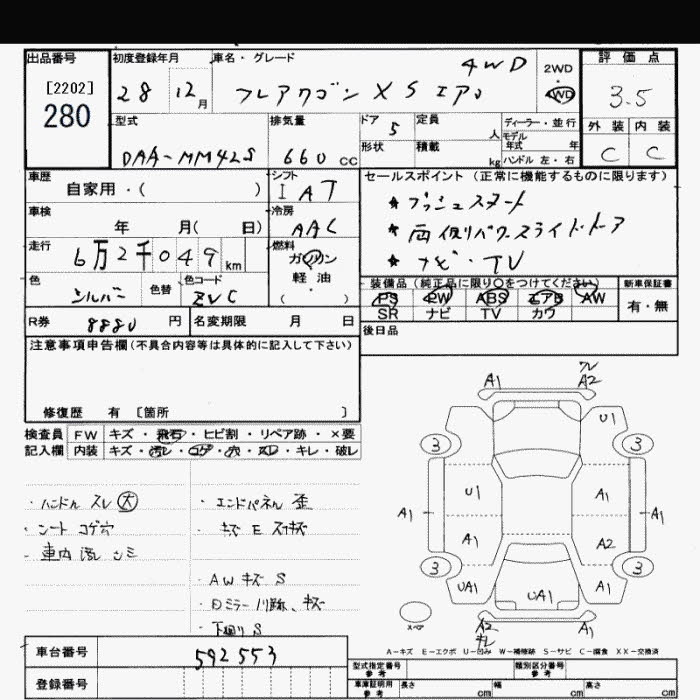 出品番号 初度登録年月 車名・グレード 4WD 2WD 評価点
[2202]
280
28 12月 フレアワゴン XS 4WD 3.5
型式 排気量 ドア 5 定員 人 ディーラー・並行 外装 内装
モデル年式 年
DAA-MM42S 660 CC 形状 積載 kg ハンドル 左・右 C C
車歴 自家用・( ) シフト IAT セールスポイント (正常に機能するものに限ります)
★プッシュスタート
車検 年 月( 日) 冷房 AAC ★両側パワースライドドア
走行 6万2千049km 燃料 ガソリン 軽油 ( ) ★ナビ・TV
色 シルバー 色替 色コード ZVC 装備品 (純正品に限り○をつけてください) 新車保証書
PS PW ABS エアB AW 有・無
SR ナビ TV カワ
R券 8880 円 名変期限 月 日 後日品
注意事項申告欄(不具合内容等は具体的に記入して下さい)
修復歴 有 〔箇所 〕
検査員 FW キズ・飛石・ヒビ割・リペア跡・×要
記入欄 内装 キズ・汚レ・コゲ・穴・スレ・キレ・破レ
・ハンドル スレ 大
・シート コゲ穴
・車内 汚レ シミ
・エンドパネル 歪
・キズ E スリキズ
・AW キズ S
・下廻り S
A1 A2
U1
3 3
U1 A1
A1 A1
A1 A2
3 3
UA1 UA1 A1
スペア
A2 A1
A-キズ E-エクボ U-凹み W-補修跡 S-サビ C-腐食 XX-交換済
車台番号 592553
登録番号
型式指定番号 参考 類別区分番号 参考
車庫証明用 参考 長さ cm 幅 cm 高さ cm